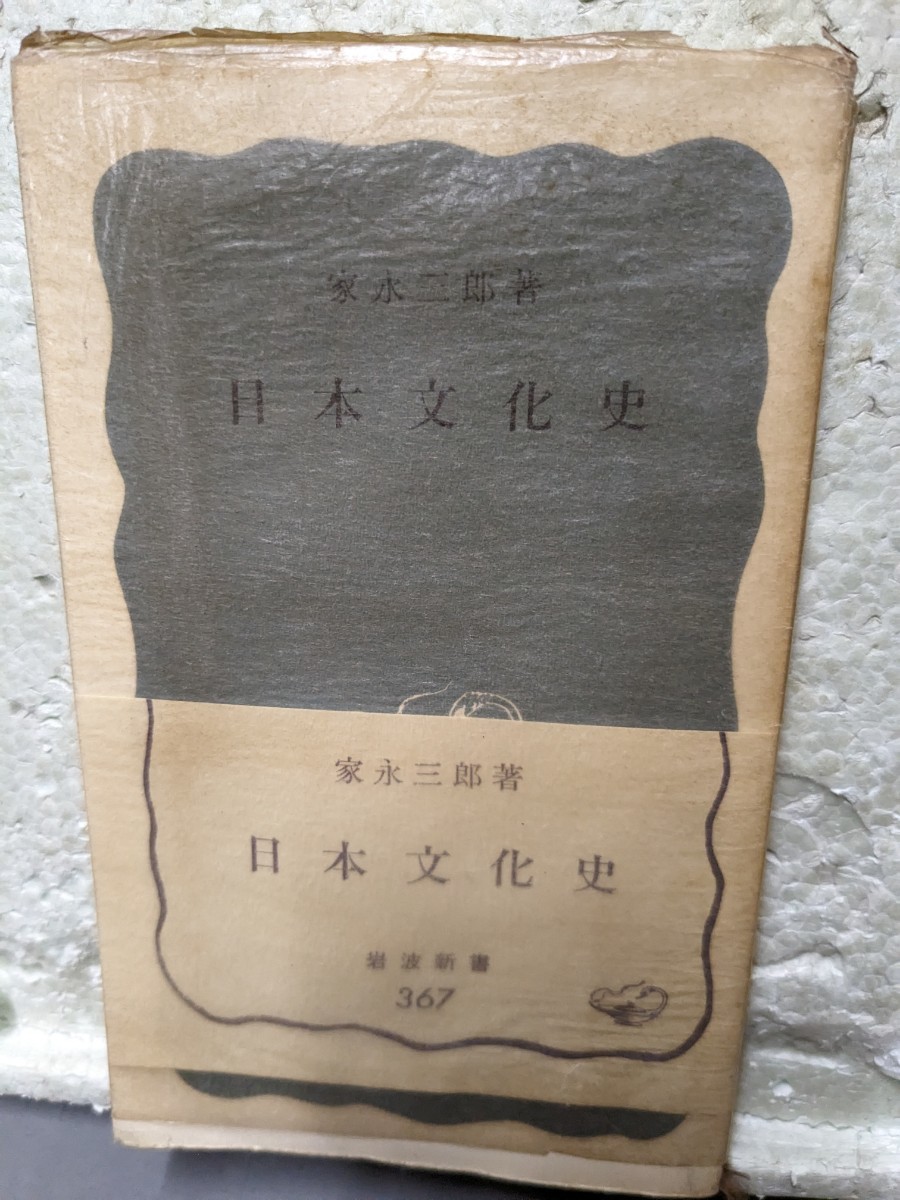 家永三郎著
日本文化史
家永三郎著
日本文化史
岩波新書
367